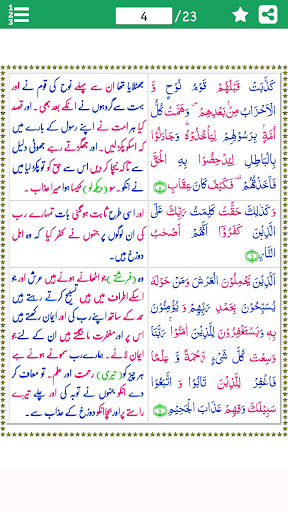 1
2
3
4 /23
كَذَّبَتْ قَبْلَهُمْ قَوْمُ نُوْحٍ وَّ
الْاَحْزَابُ مِنْۢ بَعْدِهِمْ وَهَمَّتْ كُلُّ
اُمَّةٍۭ بِرَسُوْلِهِمْ لِيَاْخُذُوْهُ وَجٰدَلُوْا
بِالْبَاطِلِ لِيُدْحِضُوْا بِهِ الْحَقَّ
فَاَخَذْتُهُمْ فَكَيْفَ كَانَ عِقَابِ
جھٹلایا تھا ان سے پہلے نوح کی قوم نے اور
بہت سے گروہوں نے انکے بعد بھی۔ اور قصد
کیا ہر امت نے اپنے رسول کے بارے میں
کہ اسکو پکڑ لیں۔ اور جھگڑتے رہے جھوٹی دلیل
سے تاکہ نیچا کر دیں اس سے حق کو تو پکڑ لیا میں
نے انکو۔ سو (دیکھ لو) کیسا ہوا میرا عذاب۔
وَكَذٰلِكَ حَقَّتْ كَلِمَتُ رَبِّكَ عَلَى
الَّذِيْنَ كَفَرُوْۤا اَنَّهُمْ اَصْحٰبُ
النَّارِ
اور اسی طرح ثابت ہوگئی بات تمہارے رب
کی ان لوگوں پر جنہوں نے کفر کیا کہ وہ اہل
دوزخ ہیں۔
اَلَّذِيْنَ يَحْمِلُوْنَ الْعَرْشَ وَ مَنْ حَوْلَهٗ
يُسَبِّحُوْنَ بِحَمْدِ رَبِّهِمْ وَ يُؤْمِنُوْنَ
بِهٖ وَ يَسْتَغْفِرُوْنَ لِلَّذِيْنَ اٰمَنُوْا رَبَّنَا
وَسِعْتَ كُلَّ شَيْءٍ رَّحْمَةً وَّ عِلْمًا
فَاغْفِرْ لِلَّذِيْنَ تَابُوْا وَ اتَّبَعُوْا
سَبِيْلَكَ وَقِهِمْ عَذَابَ الْجَحِيْمِ
وہ (فرشتے) جو اٹھائے ہوئے ہیں عرش اور جو
اسکے اطراف میں ہیں تسبیح کرتے رہتے ہیں
حمد کے ساتھ اپنے رب کی اور ایمان رکھتے ہیں
اس پر اور مغفرت مانگتے ہیں ان کے لئے جو
ایمان لائے۔ ہمارے رب سموئے ہوئے ہے
ہر چیز کو (تیری) رحمت اور علم۔ تو معاف کر
دے انکو جنہوں نے توبہ کی اور چلے تیرے
راستے پر اور بچا انکو دوزخ کے عذاب سے۔